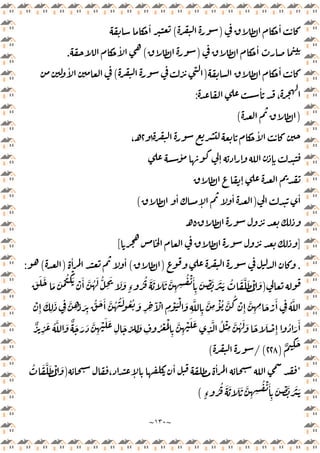 كانت أحكام الطلاق في (سورة البقرة) تعتبر أحكاما سابقة
بينما صارت أحكام الطلاق في (سورة الطلاق) هي الأحكام اللاحقة.
كانت أحكام الطلاق السابقة(التي نزلت في سورة البقرة) في العامين الأولين من
الهجرة، قد تأسست علي القاعدة:
(الطلاق ثم العدة)
حين كانت الأحكام تابعة لتشريع سورة البقرة1و2هـ،
فتبدلت بإذن الله وإرادته إلي كونها مؤسسة علي
تقديم العدة علي إيقاع الطلاق
أي تبدلت إلي (العدة أولا ثم الإمساك أو الطلاق)
وذلك بعد نزول سورة الطلاق5هـ
[وذلك بعد نزول سورة الطلاق في العام الخامس هجريا]
. وكان الدليل في سورة البقرة علي وقوع (الطلاق) أولا ثم تعتد المرأة (العدة) هو:
قوله تعالي(وَالْمُطَلَّقَاتُ يَتَرَبَّصْنَ بِأَنْفُسِهِنَّ ثَلَاثَةَ قُرُوءٍ وَلَا يَحِلُّ لَهُنَّ أَنْ يَكْتُمْنَ مَا خَلَقَ
اللَّهُ فِي أَرْحَامِهِنَّ إِنْ كُنَّ يُؤْمِنَّ بِاللَّهِ وَالْيَوْمِ الْآَخِرِ وَبُعُولَتُهُنَّ أَحَقُّ بِرَدِّهِنَّ فِي ذَلِكَ إِنْ
أَرَادُوا إِصْلَاحًا وَلَهُنَّ مِثْلُ الَّذِي عَلَيْهِنَّ بِالْمَعْرُوفِ وَلِلرِّجَالِ عَلَيْهِنَّ دَرَجَةٌ وَاللَّهُ عَزِيزٌ
حَكِيمٌ (٢٢٨) /سورة البقرة)
*فقد سمي الله سبحانه المرأة مطلقة قبل أن يكلفها بالإعتداد،فقال سبحانه(وَالْمُطَلَّقَاتُ
يَتَرَبَّصْنَ بِأَنْفُسِهِنَّ ثَلَاثَةَ قُرُوءٍ )
~١٣٠~